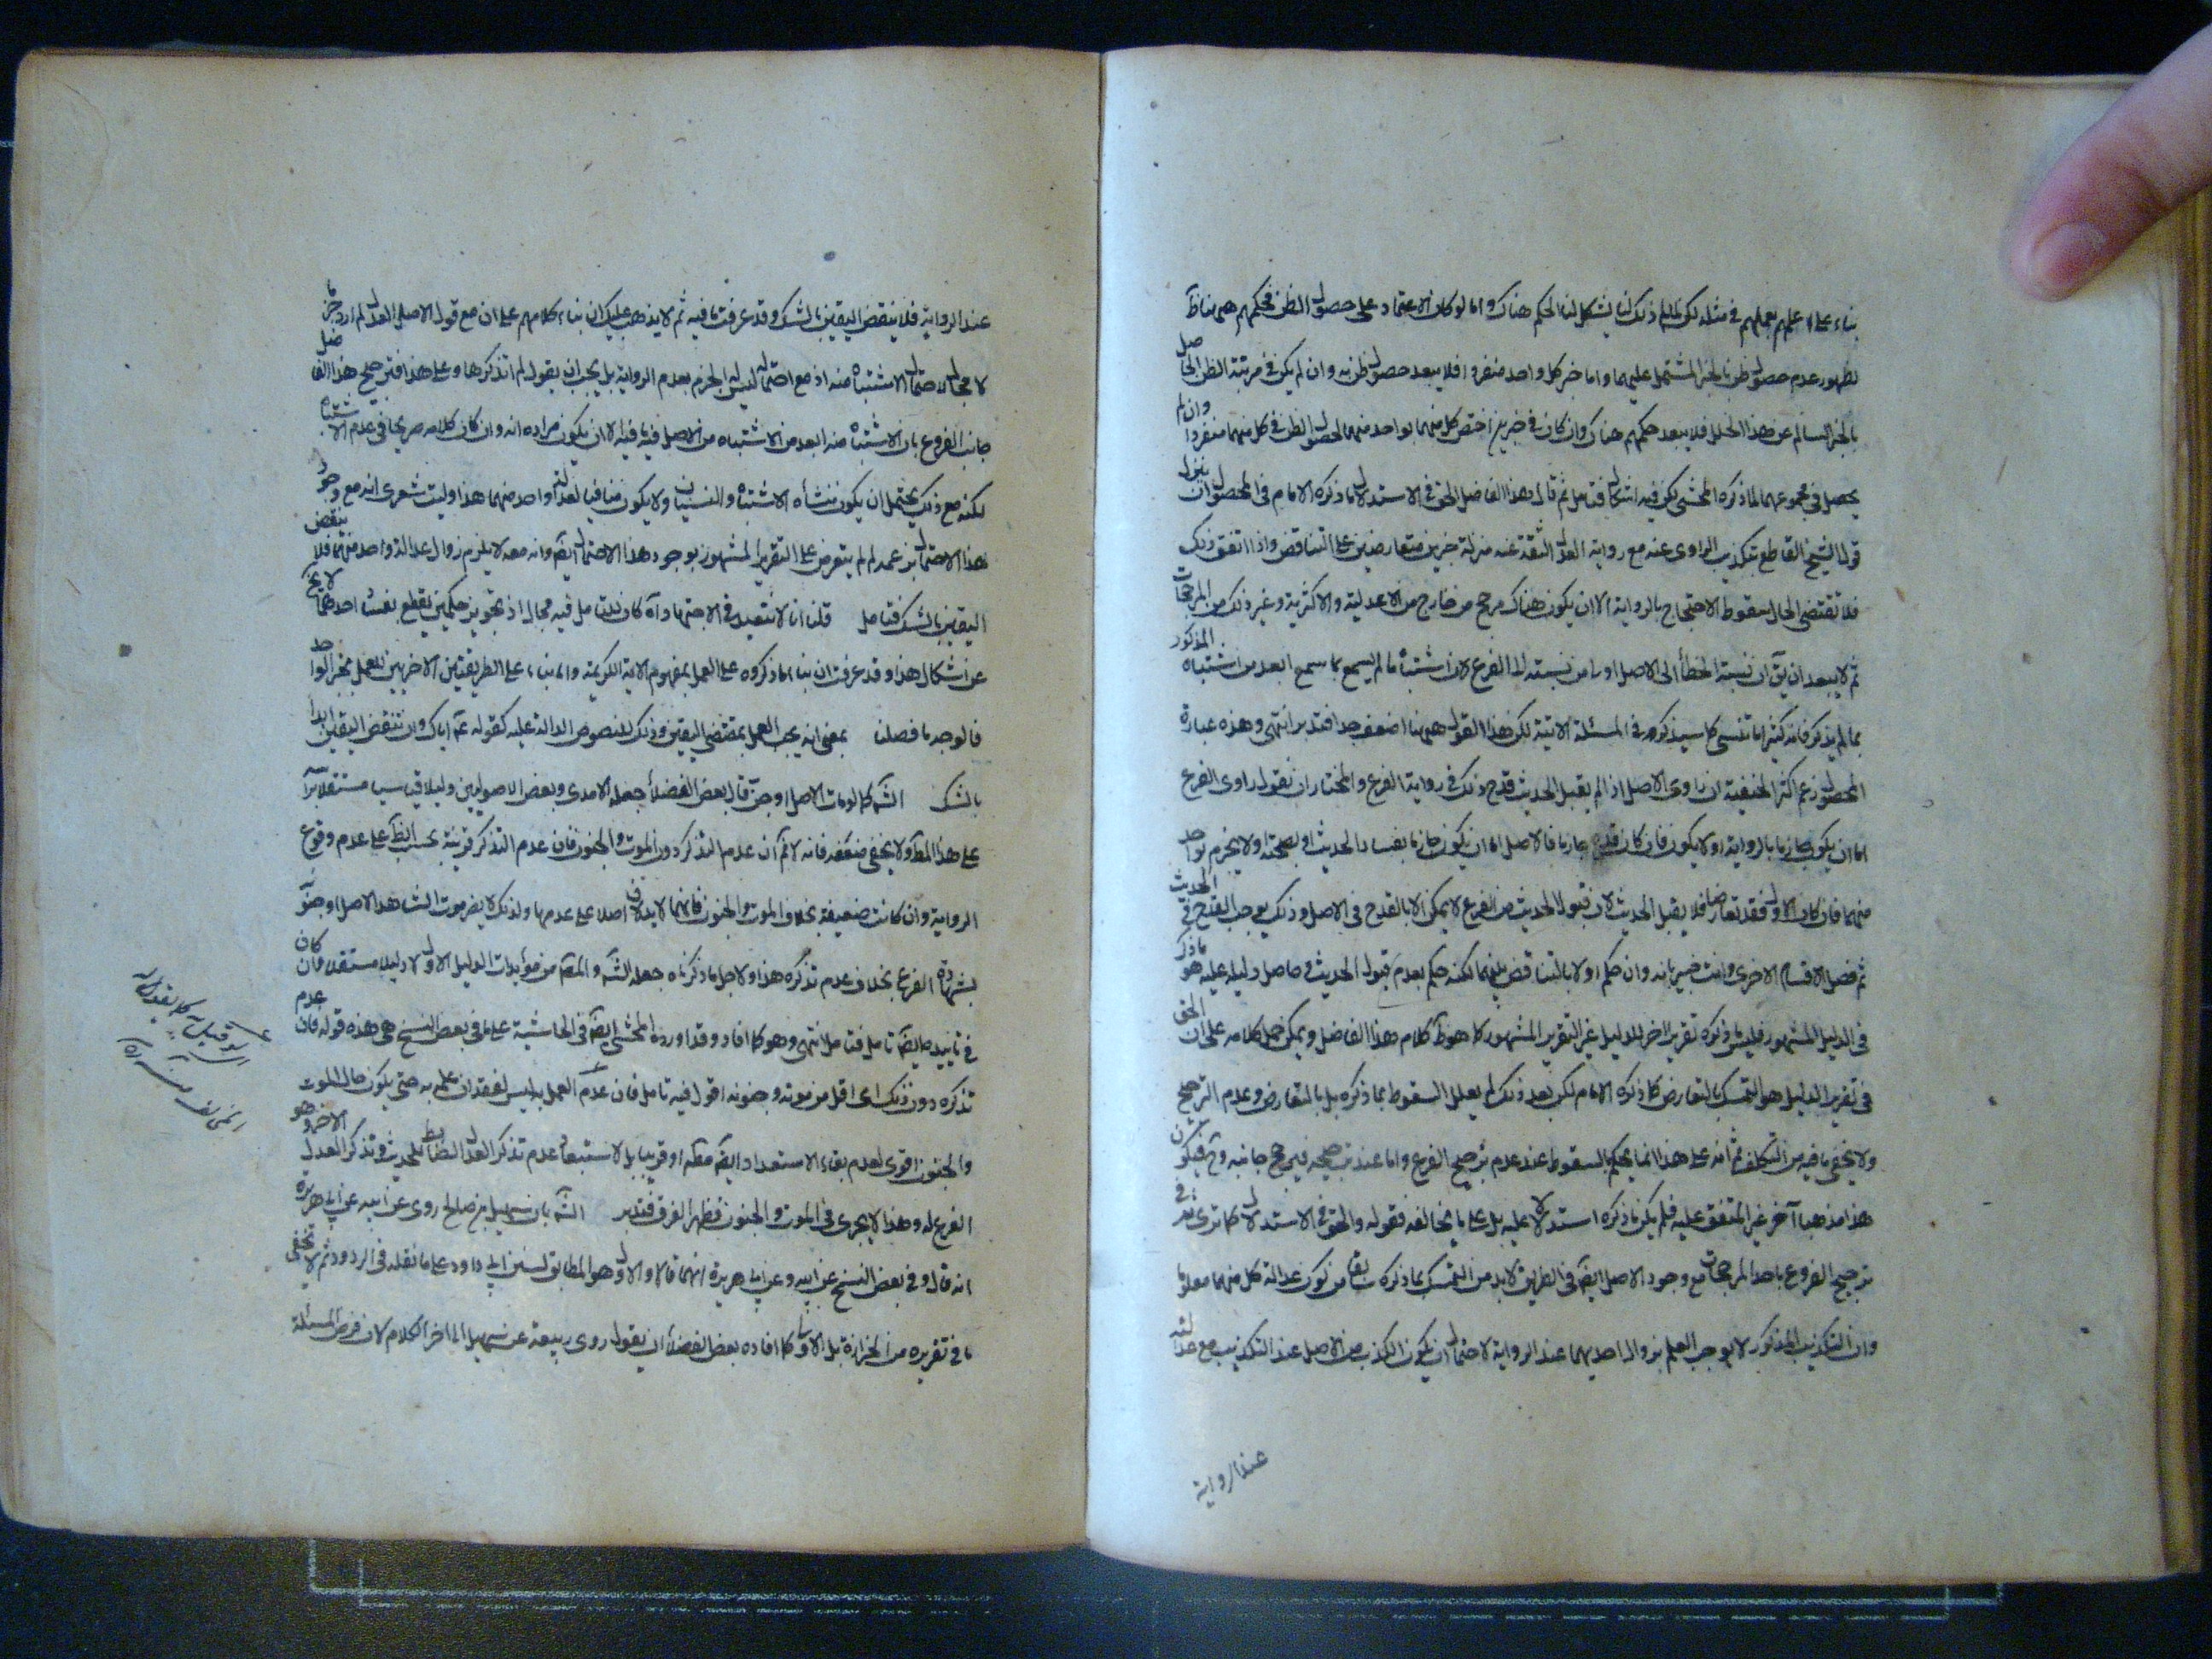 بناء على علمهم بعملهم في مثله لكن لما لم ذلك لنا يشكل لنا الحكم هناك واما لو كان الاعتماد على حصول الظن فحكمهم هيهنا
لظهور عدم حصول ظن بالخبر المشتمل عليهما واما خبر كل واحد منفردا فلا يبعد حصول ظن به وان لم يكن في مرتبة الظن الحاصل
بالخبر السالم عن هذا الخلل فلا يبعد حكمهم هناك وان كان في خبرين اختص كل منهما بواحد منهما لحصول الظن في كل منهما منفردا وان لم
يحصل في مجموعهما لما ذكره المحشي لكن فيه اشكال فتامل ثم قال هذا الفاضل الحق في الاستدلال ما ذكره الامام في المحصول ان ينزل
قول الشيخ القاطع بتكذيب الراوى عنه مع رواية العدل الثقة عنه منزلة خبرين متعارضين على التناقض واذا اتفق ذلك
فلا تقتضى الحال سقوط الاحتجاج بالرواية الا ان يكون هناك مرجح من خارج من الاعدلية والاكثرية وغير ذلك من المرجحات
ثم لا يبعد ان يق ان نسبة الخطأ الى الاصل اولى من نسبته الى الفرع لان اشتباه ما لم يسمع بما سمع ابعد من اشتباه المذكور
بما لم يذكر فانه كثيرا ما تنسى كما سيذكره في المسئلة الاتية لكن هذا القول هيهنا اضعف جدا فتدبر انتهى وهذه عبارة
المحصول زعم اكثر الحنفية ان راوى الاصل اذا لم يقبل الحديث قدح ذلك في رواية الفرع والمختار ان نقول راوى الفرع
اما ان يكون جازما بالرواية او لا يكون فان كان جازما فالاصل اما ان يكون جازما بفساد الحديث او بصحته ولا يجزم بواحد
منهما فان كان الاول فقد تعارضا فلا يقبل الحديث لان قبول الحديث من الفرع لا يمكن الا بالقدح في الاصل وذلك يوجب القدح في الحديث
ثم فصل الاقسام الاخرى وانت خبير بانه وان حكم اولا بالتناقض بينهما لكنه حكم بعدم قبول الحديث وحاصل دليله عليه هو ما ذكر
في الدليل المشهور فليس ما ذكره تقريرا اخر للدليل غير التقرير المشهور كما هو ظ كلام هذا الفاضل ويمكن حمل كلامه على ان الحق
في تقرير الدليل هو التمسك بالتعارض كما ذكره الامام لكن بعد ذلك لم يعلل السقوط بما ذكره بل بالتعارض وعدم الترجيح
ولا يخفى ما فيه من التكلف ثم انه على هذا انما يحكم بالسقوط عند عدم ترجيح الفرع واما عند ترجيحه فيرجح جانبه وح فيكون
هذا مذهبا آخر غير المتفق عليه فلم يكن ما ذكره استدلالا عليه بل على ما يخالفه فقوله والحق في الاستدلال كما ترى نعم في
ترجيح الفرع باحد المرجحات مع وجود الاصل ايضا في الطريق لابد من التمسك بما ذكره سابقا من كون عدالة كل منهما معلوما
وان التكذيب المذكور لا يوجب العلم بزوال احديهما عند الرواية لاحتمال ان يكون الكذب من الاصل عند التكذيب مع عدالته
عند الرواية
عند الرواية فلا ينقض اليقين بالشك وقد عرفت ما فيه ثم لا يذهب عليك ان بناء كلامهم على ان مع قول الاصل العدل لم اروه جزما
لا مجال لاحتمال الاشتباه منه اذ مع احتماله ليس له الجزم بعدم الرواية بل يجب ان يقول لم اتذكرها وعلى هذا فترجيح هذا الفاضل
جانب الفرع بان الاشتباه منه ابعد من الاشتباه من الاصل فيه ما فيه الا ان يكون مراده انه وان كان كلامه صريحا في عدم الاشتباه
لكنه مع ذلك يحتمل ان يكون منشأه الاشتباه والنسيان ولا يكون منافيا لعدالة واحد منهما هذا وليت شعرى انه مع وجود
هذا الاحتمال عنده لم لم يتعرض على التقرير المشهور بوجود هذا الاحتمال ايضا وانه معه لا يلزم زوال عدالة واحد منهما فلا ينقض
اليقين بالشك فتامل قلنا لا نتعبد في الاجتهاد آه كان للتامل فيه مجال اذ تجويز حكمين يقطع بفساد احدهما لا يخ
عن اشكال هذا وقد عرفت ان بناء ما ذكروه على العمل بمفهوم الاية الكريمة والا بناء على الطريقتين الاخريين للعمل بخبر الواحد
فالوجه ما فصلنا بمعنى انه يجب العمل بمقتضى اليقين وذلك للنصوص الدالة عليه كقوله عم اياك وان تنقض اليقين ابدا
بالشك الشه كما لو مات الاصل او جن قال بعض الفضلاء جعله الامدى وبعض الاصوليين دليلا قياسيا مستقلا
على هذا المط ولا يخفى ضعفه فانه لا ثم ان عدم التذكر دون الموت والجنون فان عدم التذكر قرينة بحسب الظ على عدم وقوع
الرواية وان كانت ضعيفة بخلاف الموت والجنون فانهما لا يدلان اصلا على عدمها ولذلك لا يضر موت الشاهد الاصل او جنونه
بشهادة الفرع بخلاف عدم تذكره هذا ولاجل ما ذكرناه جعله الشه والمص من مؤيدات الدليل الاول لا دليلا مستقلا فان كان
في تاييده ايضا تامل فتامل انتهى وهو كما افاد وقد اورده المحشي ايضا في الحاشية على ما في بعض النسخ هي هذه قوله فان عدم
تذكره دون ذلك اى اقل من موته وجنونه اقول فيه تامل فان عدم العمل به ليس لفقدان علمه به حتى يكون حال الموت
والجنون اقوى لعدم بقاء الاستعداد ايضا فيهما او قريبا بل لاستبعاد عدم تذكر العدل الضابط للحديث وتذكر العدل الاخر وهو
الفرع له وهذا لا يجرى في الموت والجنون فظهر الفرق فتدبر الشه بان سهيل بن صالح روى عن ابيه عن ابى هريرة
انه قال وفي بعض النسخ عن ابيه وعن ابى هريرة انهما قالا والاول هو المطابق لسنن ابى داود على ما نقله في الردود ثم لا يخفى
ما في تقريره من الحزازة بل الاولى كما افاده بعض الفضلاء ان يقول روى ربيعة عن سهيل الى اخر الكلام لان فرض المسئلة